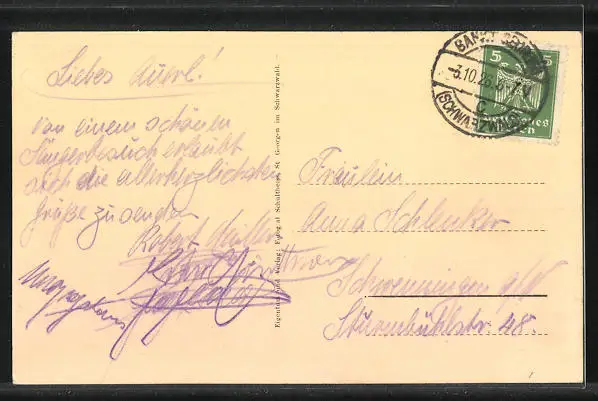 Liebes Auerl!
Von einem schönen
Sängerbesuch erlaubt
sich die allerherzlichsten
Grüße zu senden
Robert
Eigentum und Verlag: Fotog. at Schultheiss, St. Georgen im Schwarzwald.
SANKT GEORGEN
-3.10.25.6-7N
C
(SCHWARZWALD)
5 5
Deutsches
Reich
Fräulein
Anna Schlenker
Schwenningen a/N
Sturmbühlstr. 48.